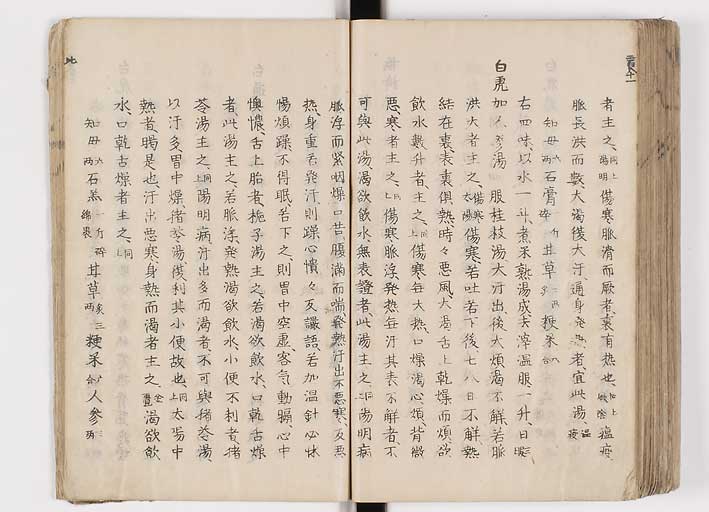 者主之、陽明同上傷寒脈滑而厥者、裏有熱也、 瘟疫
脈長洪而數、大渴復大汗、通身発熱者、宜此湯、瘟疫
知母六兩石膏一斤碎甘草二兩粳米六合
右四味、以水一斗、煮米熟湯成、去滓、溫服一升、日三服、
白虎加人参湯 服桂枝湯、大汗出後、大煩渴不解、若脈
洪大者主之、傷寒太陽傷寒、若吐若下後、七八日不解、熱
結在裏、表裏俱熱、時々悪風、大渴、舌上乾燥而煩、欲
飲水數升者主之、同上傷寒無大熱、口燥渴、心煩、背微
悪寒者主之、同上傷寒脈浮、発熱無汗、其表不解者、不
可與此湯、渴欲飲水、無表證者、此湯主之、同上陽明病
脈浮而緊、咽燥口苦、腹滿而喘、発熱汗出、不悪寒、反悪
热、身重、若発汗則躁、心憒々、反讝語、若加温針、必怵
惕煩躁不得眠、若下之、則胃中空虚、客气動膈、心中
懊憹、舌上胎者、梔子湯主之、若渴欲飲水、口乾舌燥
者、此湯主之、若脈浮、発熱、渴欲飲水、小便不利者、猪
苓湯主之、同上陽明病、汗出多而渴者、不可與猪苓湯、
以汗多、胃中燥、猪苓湯復利其小便故也、同上太陽中
熱者、暍是也、汗出悪寒、身熱而渴者主之、金匱渴欲飲
水、口乾舌燥者主之、同上
知母六兩石羔一斤碎綿裹甘草二兩粳米六合人参三兩